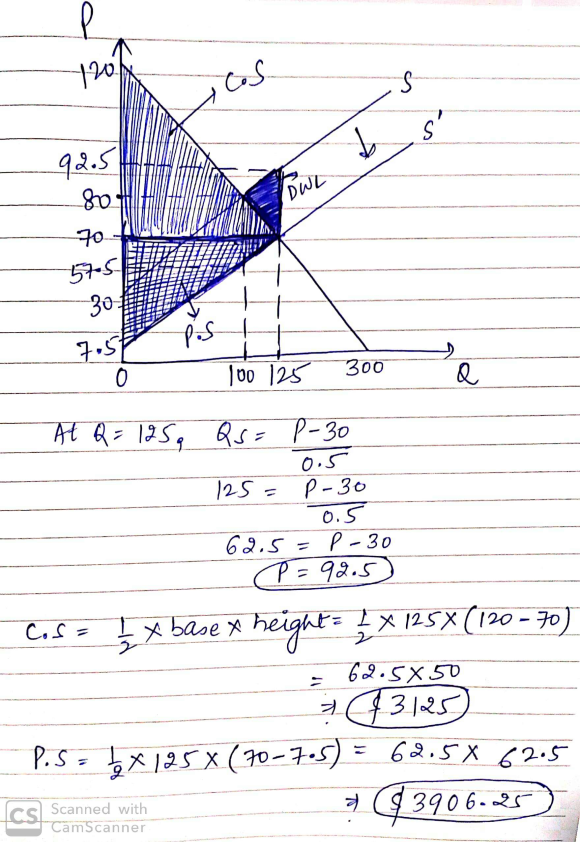 P
120
C.S
S
S'
92.5
DWL
80
70
57.5
30
P.S
7.5
0 100 125 300 Q
At Q = 125, Qs = P-30
0.5
125 = P-30
0.5
62.5 = P-30
P = 92.5
C.S = 1/2 x base x height = 1/2 x 125 x (120-70)
= 62.5 x 50
⇒ $3125
P.S = 1/2 x 125 x (70-7.5) = 62.5 x 62.5
⇒ $3906.25
CS Scanned with
CamScanner